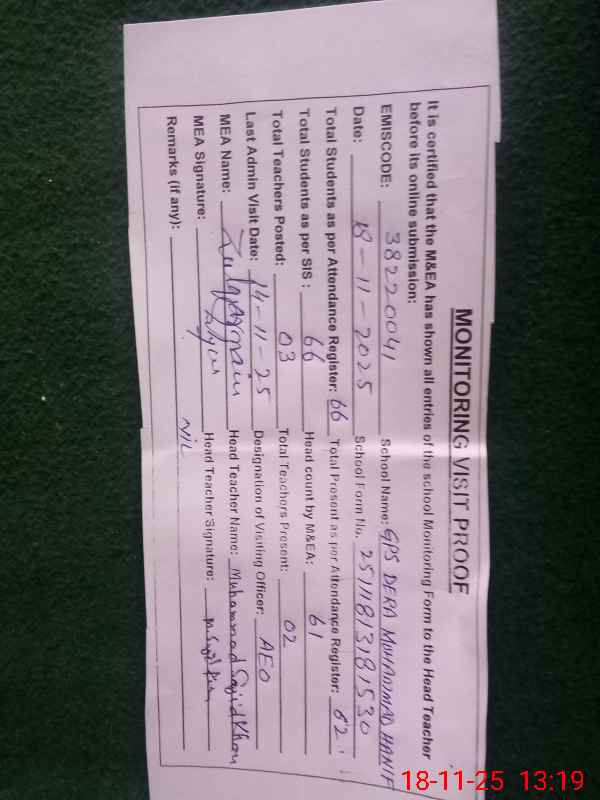 MONITORING VISIT PROOF
It is certified that the M&EA has shown all entries of the school Monitoring Form to the Head Teacher
before its online submission:
EMISCODE: 38220041 School Name: GPS DERA MUHAMMAD HANIF
Date: 18-11-2025 School Form No. 25111813181530
Total Students as per Attendance Register: 66 Total Present as per Attendance Register: 62
Total Students as per SIS : 66 Head count by M&EA: 61
Total Teachers Posted: 03 Total Teachers Present: 02
Last Admin Visit Date: 14-11-25 Designation of Visiting Officer: AEO
MEA Name: Head Teacher Name: Muhammad Sajid Khan
MEA Signature: Head Teacher Signature:
Remarks (if any): NIL
18-11-25 13:19